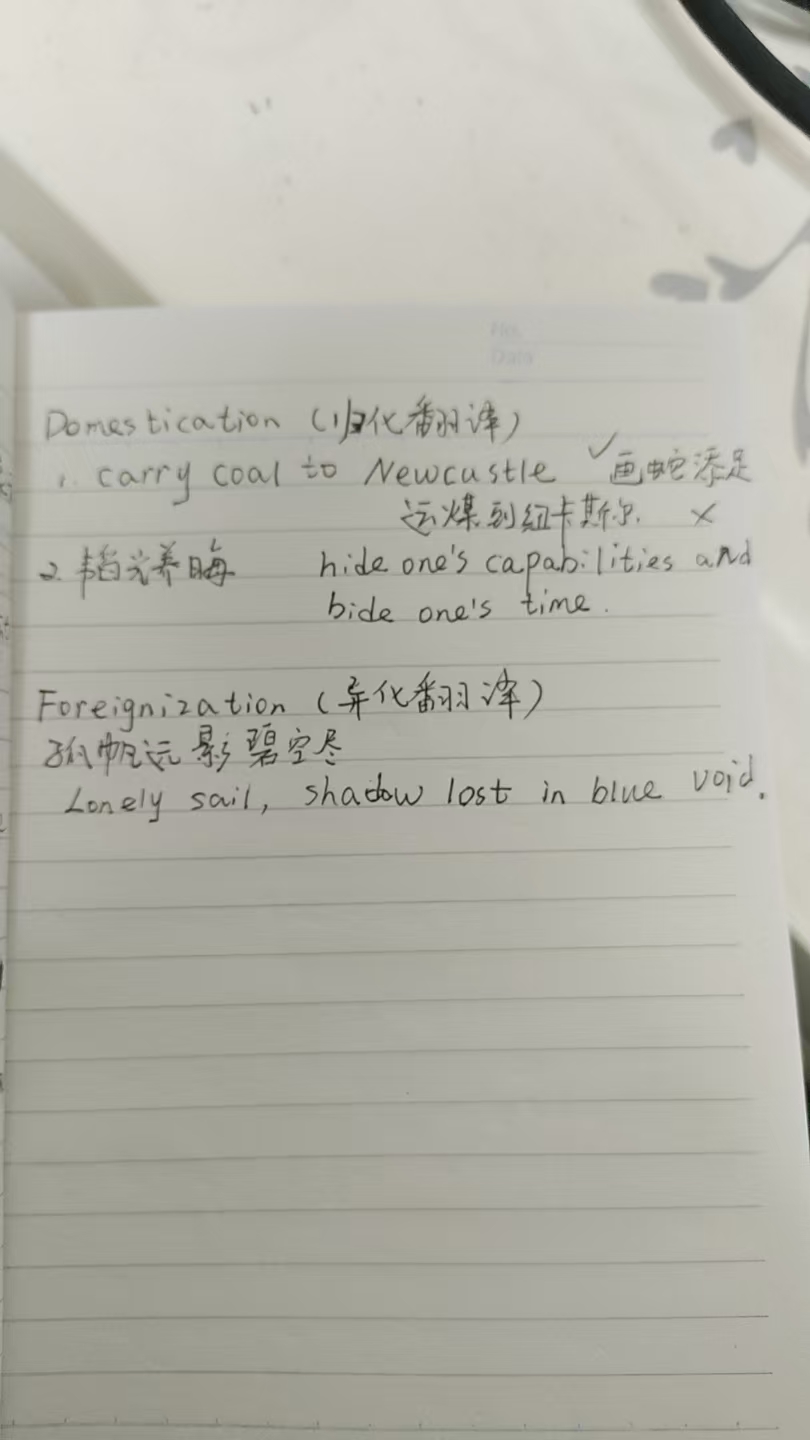 No.
Date
Domestication (归化翻译)
1. carry coal to Newcastle ✓画蛇添足
运煤到纽卡斯尔. ×
2. 韬光养晦 hide one's capabilities and
bide one's time.
Foreignization (异化翻译)
孤帆远影碧空尽
Lonely sail, shadow lost in blue void.